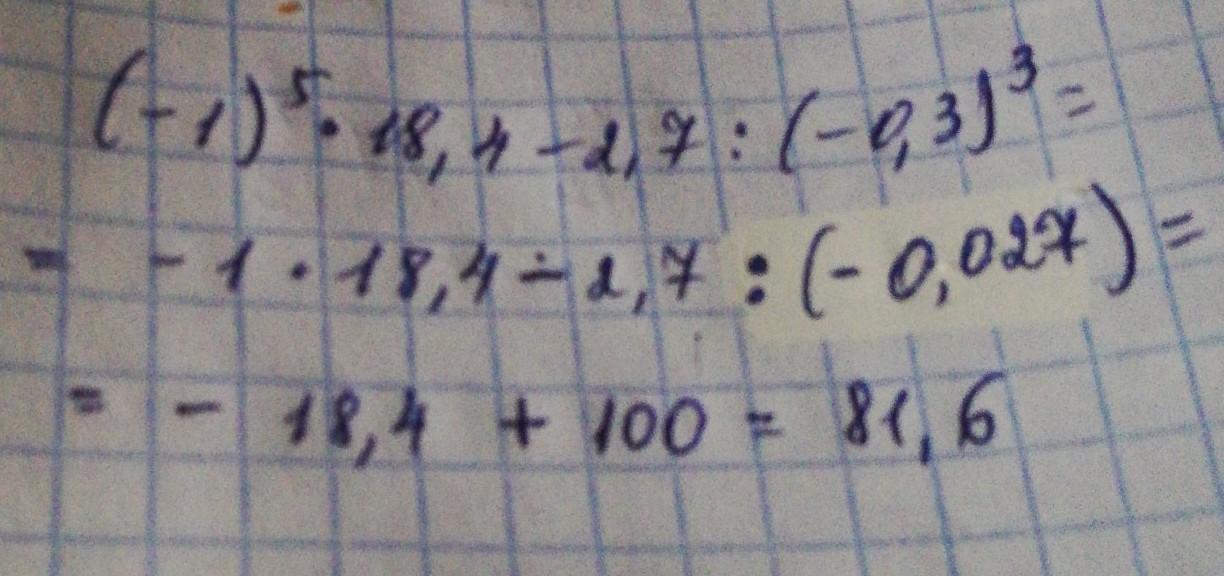 (-1)⁵ · 18,4 - 2,7 : (-0,3)³ =
= -1 · 18,4 - 2,7 : (-0,027) =
= - 18,4 + 100 = 81,6